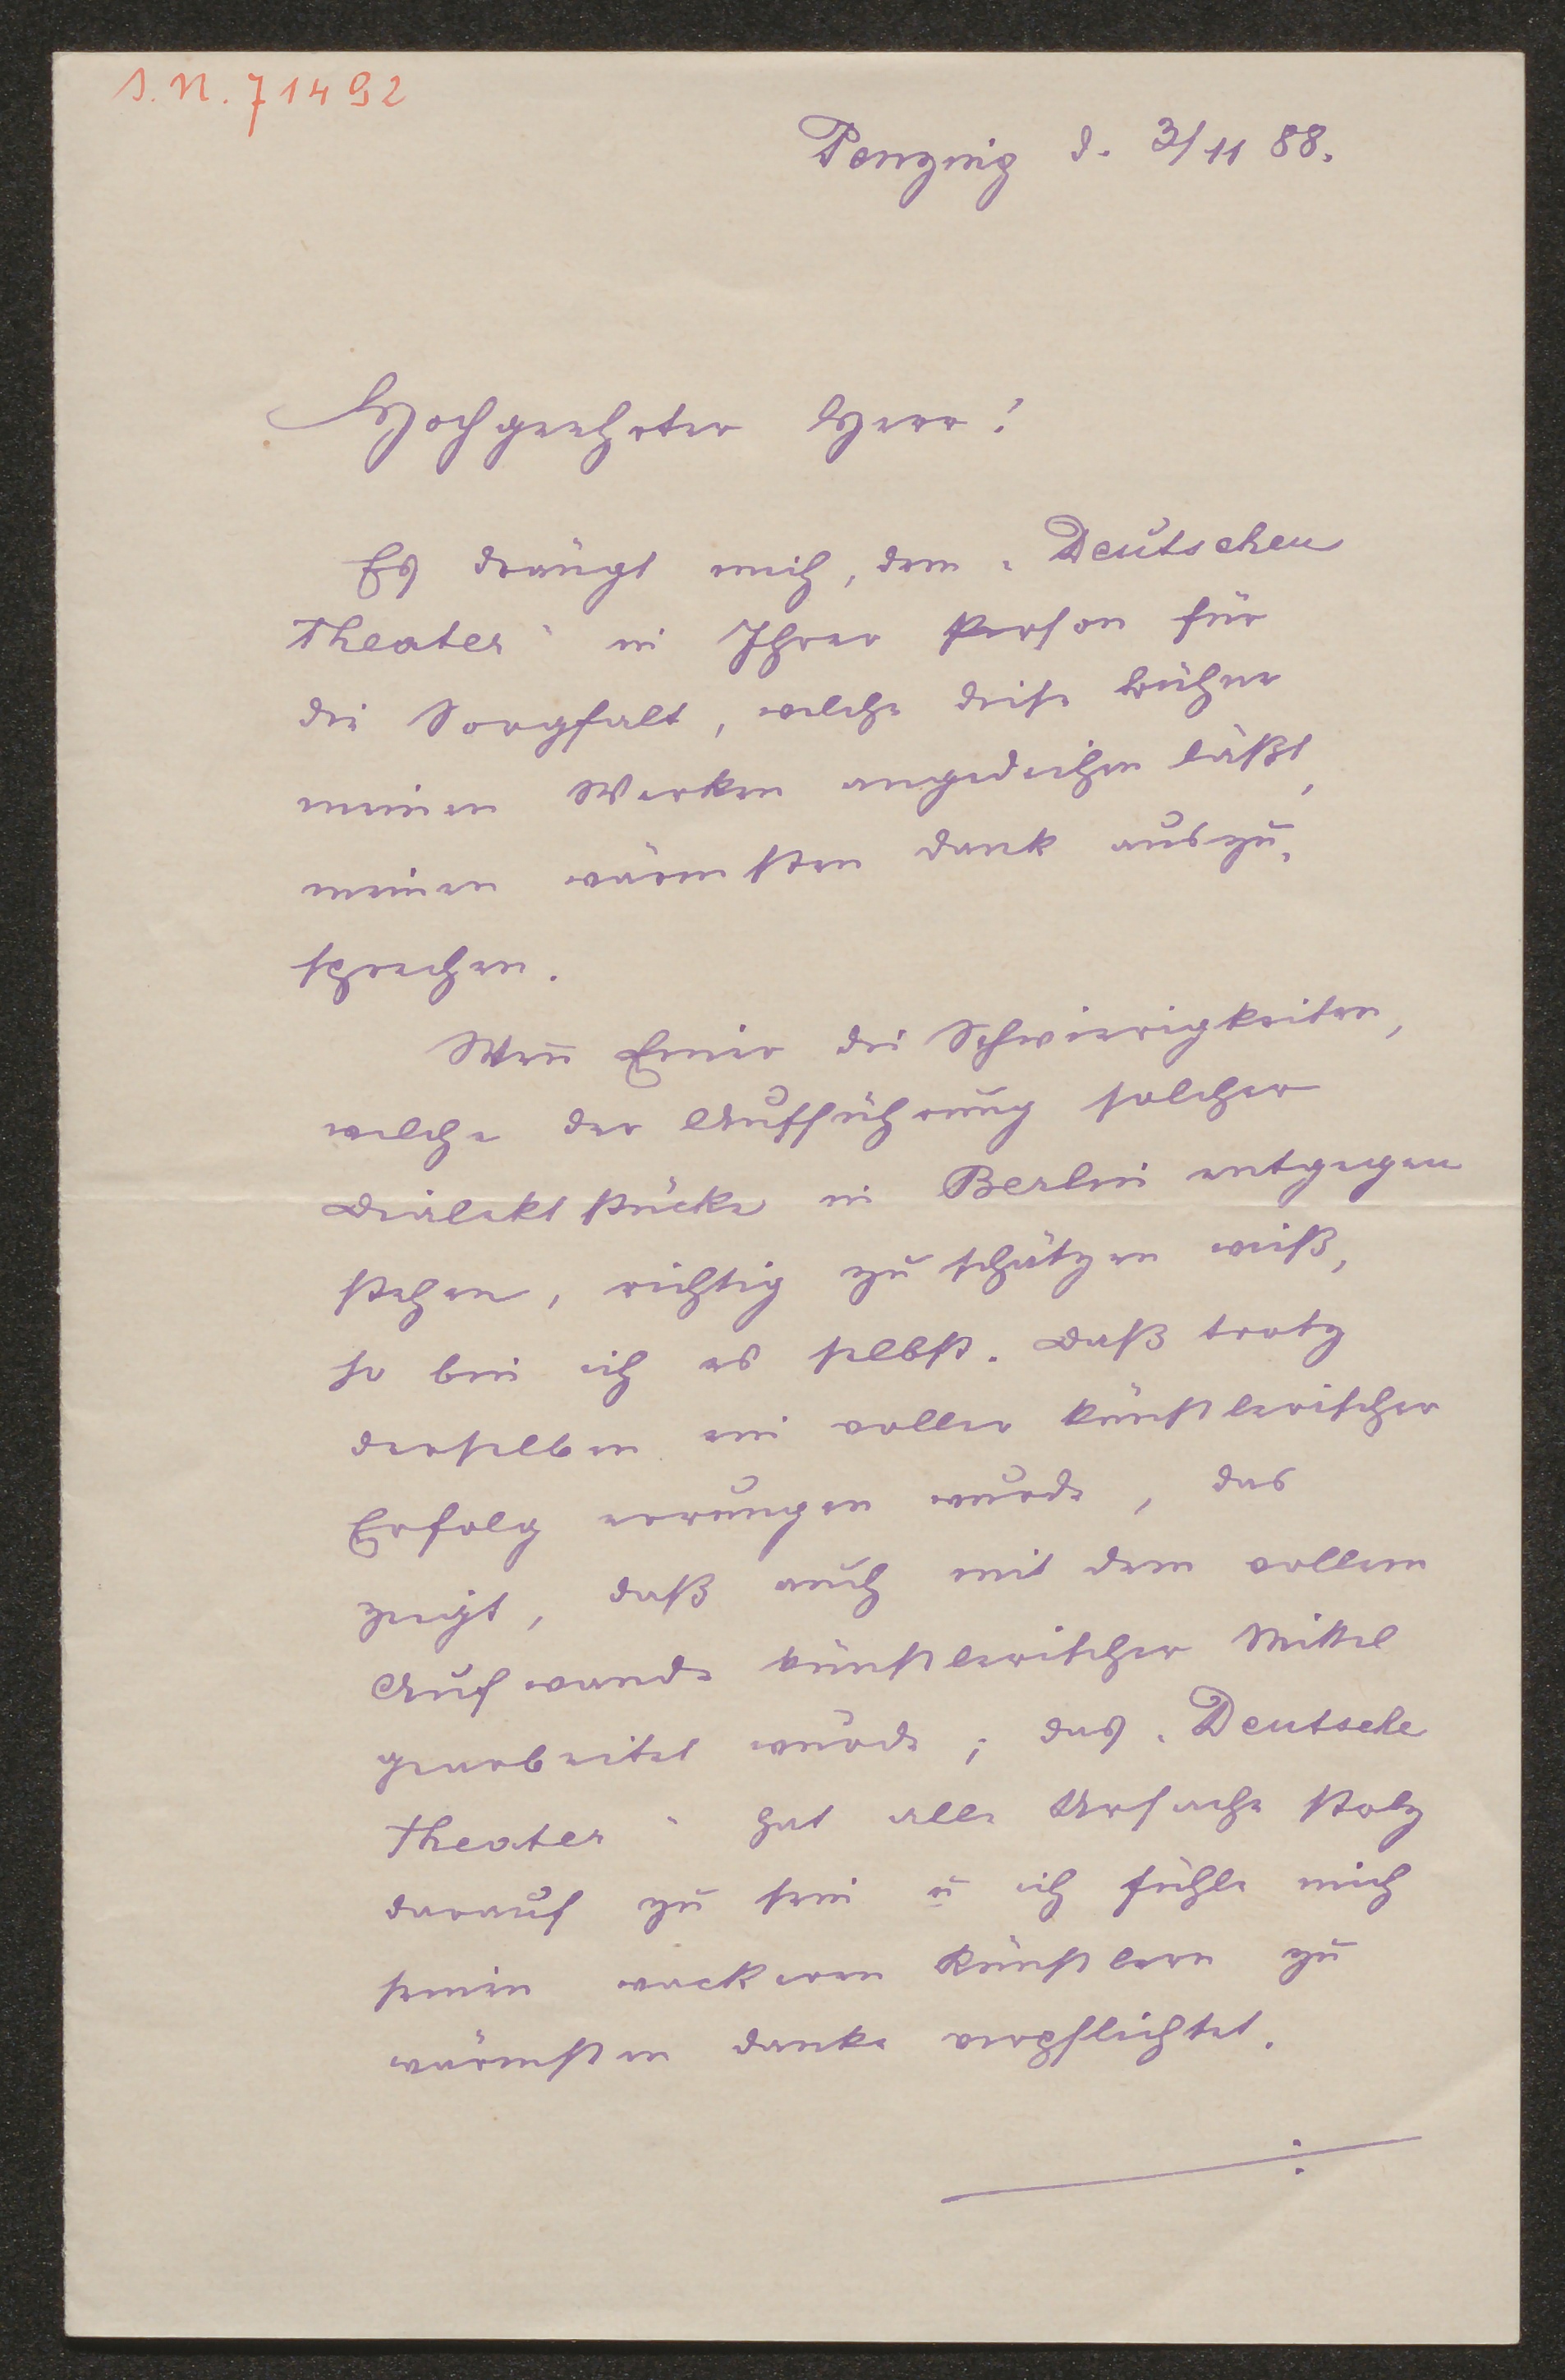 I. N. 71492
Penzing d. 3/11 88.
Hochgeehrter Herr!
Es drängt mich, dem „Deutschen
Theater“ in Ihrer Person für
die Sorgfalt, welche diese Bühne
meinen Werken angedeihen läßt,
meinen wärmsten Dank auszu-
sprechen.
Weñ Einer die Schwierigkeiten,
welche der Aufführung solcher
Dialektstücke in Berlin entgegen
stehen, richtig zu schätzen weiß,
so bin ich es selbst. Daß trotz
derselben ein voller künstlerischer
Erfolg errungen wurde, das
zeigt, daß auch mit dem vollem
Aufwande künstlerischer Mittel
gearbeitet wurde; das „Deutsche
Theater“ hat alle Ursache stolz
darauf zu sein u ich fühle mich
seinen wackeren Künstlern zu
wärmsten Danke verpflichtet.